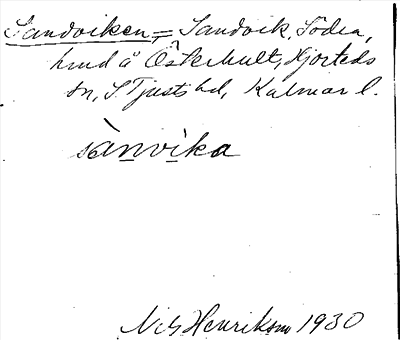 Sandviken, = Sandvik, Södra,
hmd å Österhult, Hjorteds
sn, S Tjusts hd, Kalmar l.
sànvika
Nils Henrikson 1930